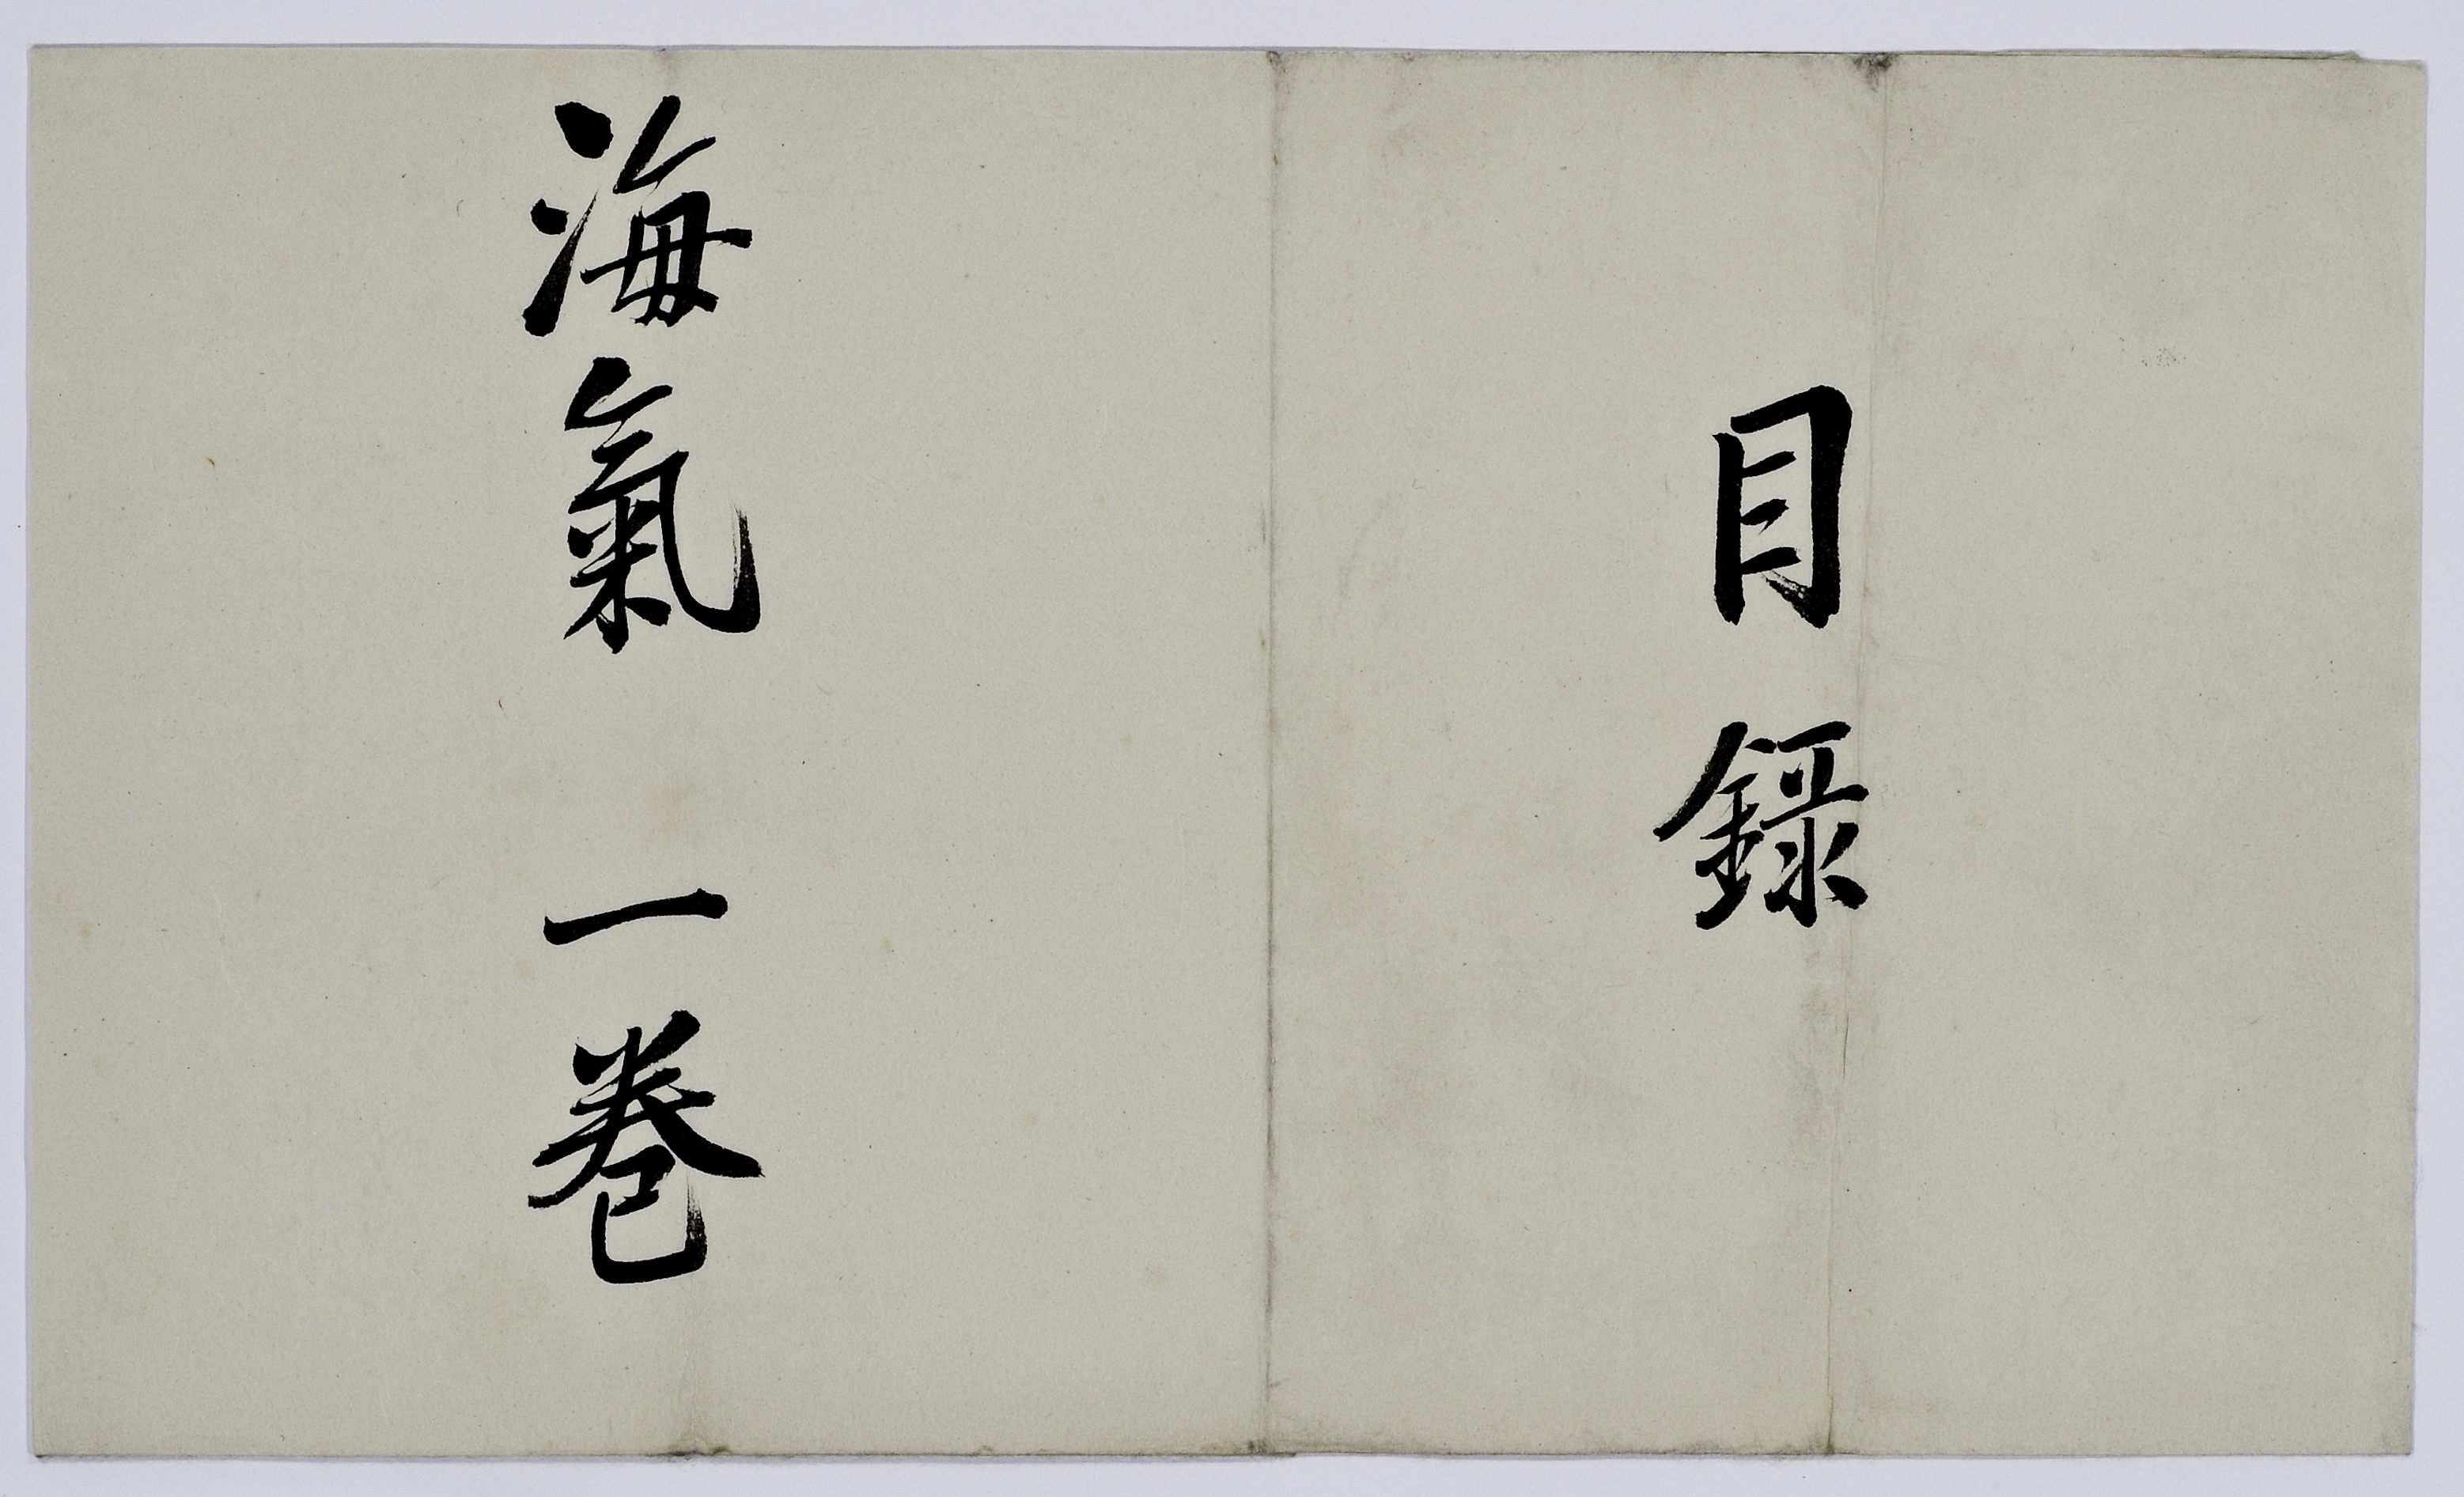 目録
海氣一巻